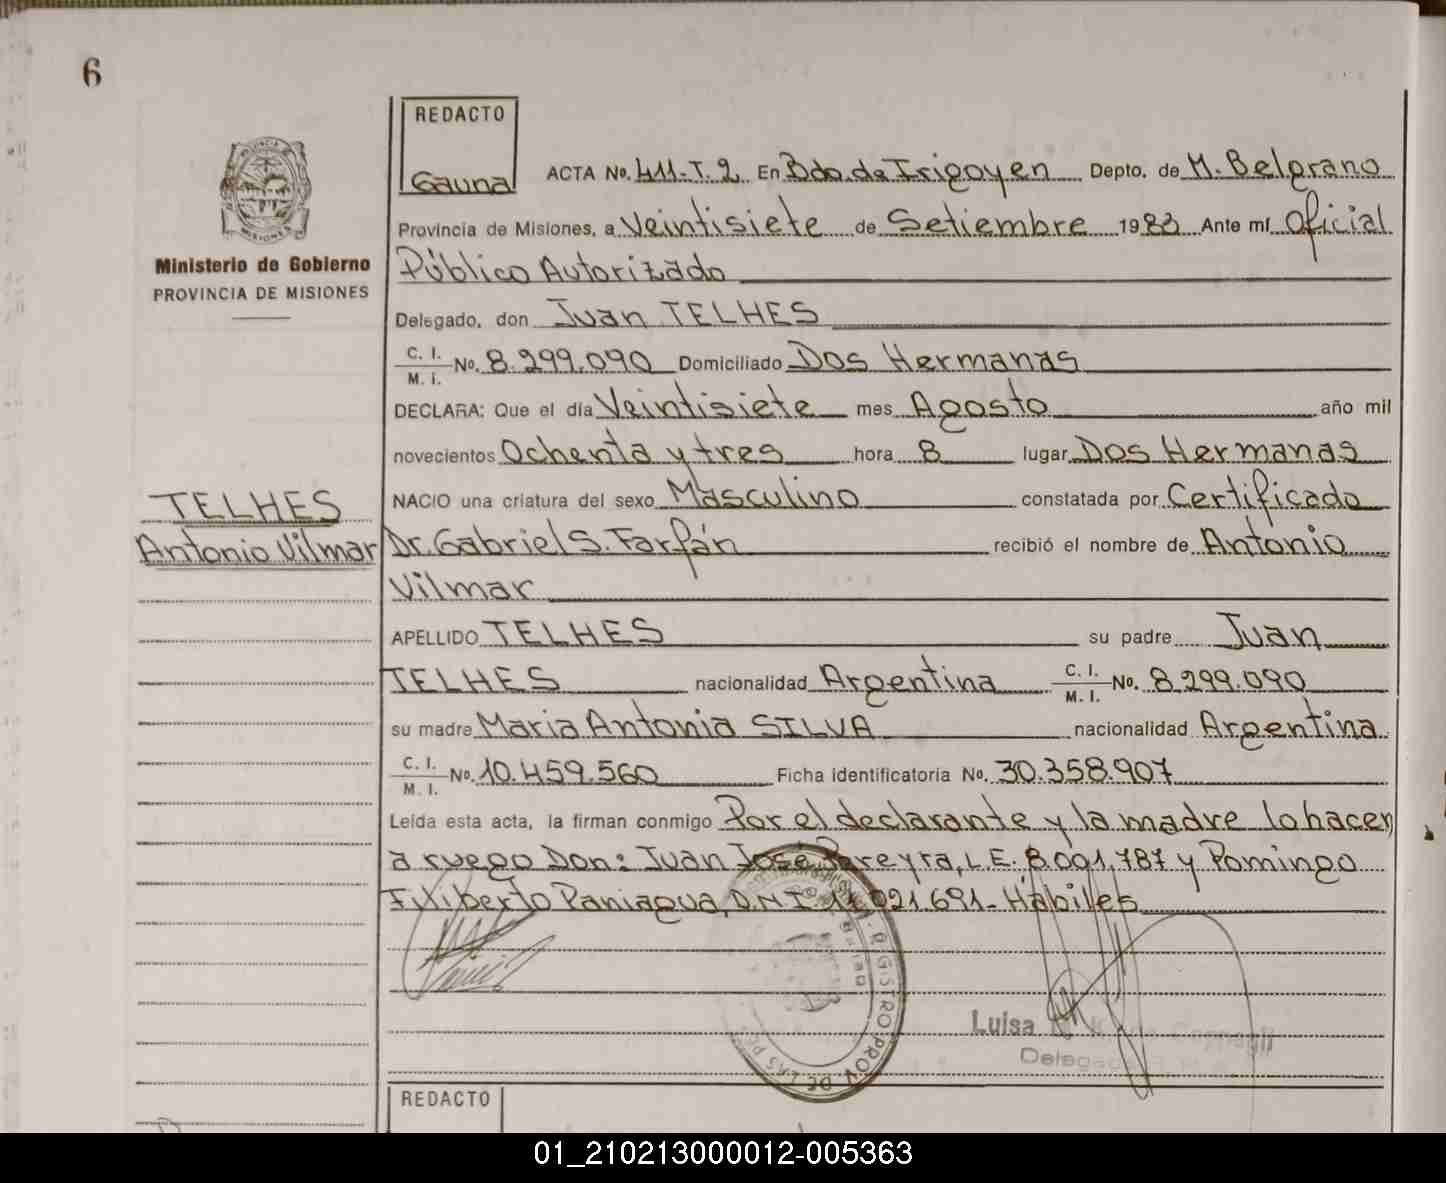 6
REDACTO
Gauna
ACTA No. 411-T.2 En Bdo. de Irigoyen Depto. de M. Belgrano
Provincia de Misiones, a Veintisiete de Setiembre 1983 Ante mí Oficial
Público Autorizado
Ministerio de Gobierno
PROVINCIA DE MISIONES
Delegado, don Juan TELHES
C. I. / M. I. No. 8.299.090 Domiciliado Dos Hermanas
DECLARA: Que el día Veintisiete mes Agosto año mil
novecientos Ochenta y tres hora 8 lugar Dos Hermanas
TELHES
Antonio Vilmar
NACIO una criatura del sexo Masculino constatada por Certificado
Dr. Gabriel S. Farfán recibió el nombre de Antonio
Vilmar
APELLIDO TELHES su padre Juan
TELHES nacionalidad Argentina C. I. / M. I. No. 8.299.090
su madre Maria Antonia SILVA nacionalidad Argentina
C. I. / M. I. No. 10.459.560 Ficha identificatoria No. 30.358.907
Leída esta acta, la firman conmigo Por el declarante y la madre lo hacen
a ruego Don: Juan José Pereyra, L.E. 8.091.787 y Domingo
Filiberto Paniagua, D.N.I. 11.021.691- Hábiles
REGISTRO PROV. DE LAS PE
Luisa
Delegada
REDACTO
01_210213000012-005363